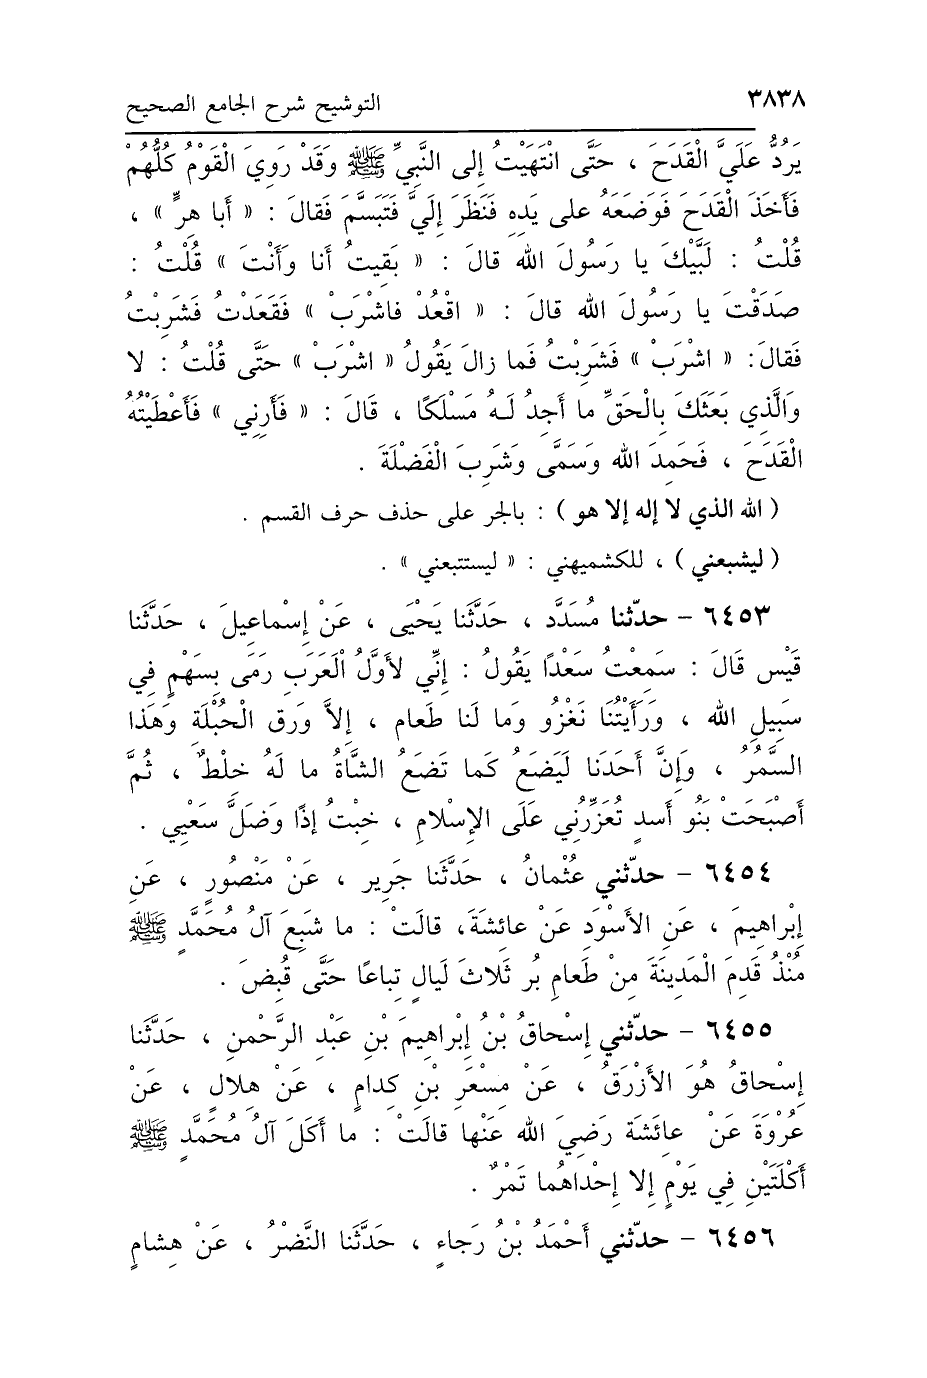 ٣٨٣٨ التوشيح شرح الجامع الصحيح
يَرُدُّ عَلَيَّ الْقَدَحَ ، حَتَّى انْتَهَيْتُ إلى النَّبِيِّ ﷺ وَقَدْ رَوِيَ الْقَوْمُ كُلُّهُمْ
فَأَخَذَ الْقَدَحَ فَوَضَعَهُ على يَدِهِ فَنَظَرَ إِلَيَّ فَتَبَسَّمَ فَقالَ : « أَبا هِرٍّ » ،
قُلْتُ : لَبَّيْكَ يا رَسُولَ الله قالَ : « بَقِيتُ أَنا وَأَنْتَ » قُلْتُ :
صَدَقْتَ يا رَسُولَ الله قالَ : « اقْعُدْ فاشْرَبْ » فَقَعَدْتُ فَشَرِبْتُ
فَقالَ: « اشْرَبْ » فَشَرِبْتُ فَما زالَ يَقُولُ « اشْرَبْ » حَتَّى قُلْتُ : لا
وَالَّذِي بَعَثَكَ بِالْحَقِّ ما أَجِدُ لَهُ مَسْلَكًا ، قَالَ : « فَأَرِنِي » فَأَعْطَيْتُهُ
الْقَدَحَ ، فَحَمِدَ الله وَسَمَّى وَشَرِبَ الْفَضْلَةَ .
( الله الذي لا إله إلا هو ) : بالجر على حذف حرف القسم .
( ليشبعني ) ، للكشميهني : « ليستتبعني » .
٦٤٥٣ - حدّثنا مُسَدَّد ، حَدَّثَنا يَحْيَى ، عَنْ إِسْماعِيلَ ، حَدَّثَنا
قَيْس قَالَ : سَمِعْتُ سَعْدًا يَقُولُ : إِنِّي لأَوَّلُ الْعَرَبِ رَمَى بِسَهْمٍ فِي
سَبِيلِ الله ، وَرَأَيْتُنَا نَغْزُو وَما لَنا طَعام ، إِلاَّ وَرق الْحُبْلَةِ وَهَذا
السَّمُرُ ، وَإِنَّ أَحَدَنَا لَيَضَعُ كَما تَضَعُ الشَّاةُ ما لَهُ خلْطٌ ، ثُمَّ
أَصْبَحَتْ بَنُو أَسدٍ تُعَزِّرُنِي عَلَى الإِسْلامِ ، خِبْتُ إِذًا وَضَلَّ سَعْيِي .
٦٤٥٤ - حدّثني عُثْمانُ ، حَدَّثَنا جَرِير ، عَنْ مَنْصُورٍ ، عَنِ
إِبْراهِيمَ ، عَنِ الأَسْوَدِ عَنْ عائِشَةَ، قالَتْ : ما شَبِعَ آلُ مُحَمَّدٍ ﷺ
مُنْذُ قَدِمَ الْمَدِينَةَ مِنْ طَعامِ بُر ثَلاثَ لَيالٍ تِباعًا حَتَّى قُبِضَ .
٦٤٥٥ - حدّثني إِسْحاقُ بْنُ إِبْراهِيمَ بْنِ عَبْدِ الرَّحْمنِ ، حَدَّثَنا
إِسْحاقُ هُوَ الأَزْرَقُ ، عَنْ مِسْعَرِ بْنِ كِدامٍ ، عَنْ هِلالٍ ، عَنْ
عُرْوَةَ عَنْ عائِشَةَ رَضِيَ الله عَنْها قالَتْ : ما أَكَلَ آلُ مُحَمَّدٍ ﷺ
أَكْلَتَيْنِ فِي يَوْمٍ إِلا إِحْداهُما تَمْرٌ .
٦٤٥٦ - حدّثني أَحْمَدُ بْنُ رَجاءٍ ، حَدَّثَنا النَّضْرُ ، عَنْ هِشامٍ